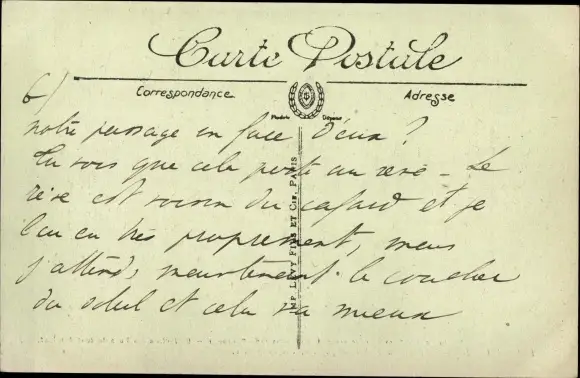 Carte Postale
Correspondance
Adresse
Modèle Déposé
6)
notre passage en face d'eux ?
Tu vois que cela porte au rêve - Le
rêve est voisin du cafard et je
l'ai eu très proprement, mais
j'attends maintenant le coucher
du soleil et cela va mieux
IMP. LEVY FILS ET CIE, PARIS